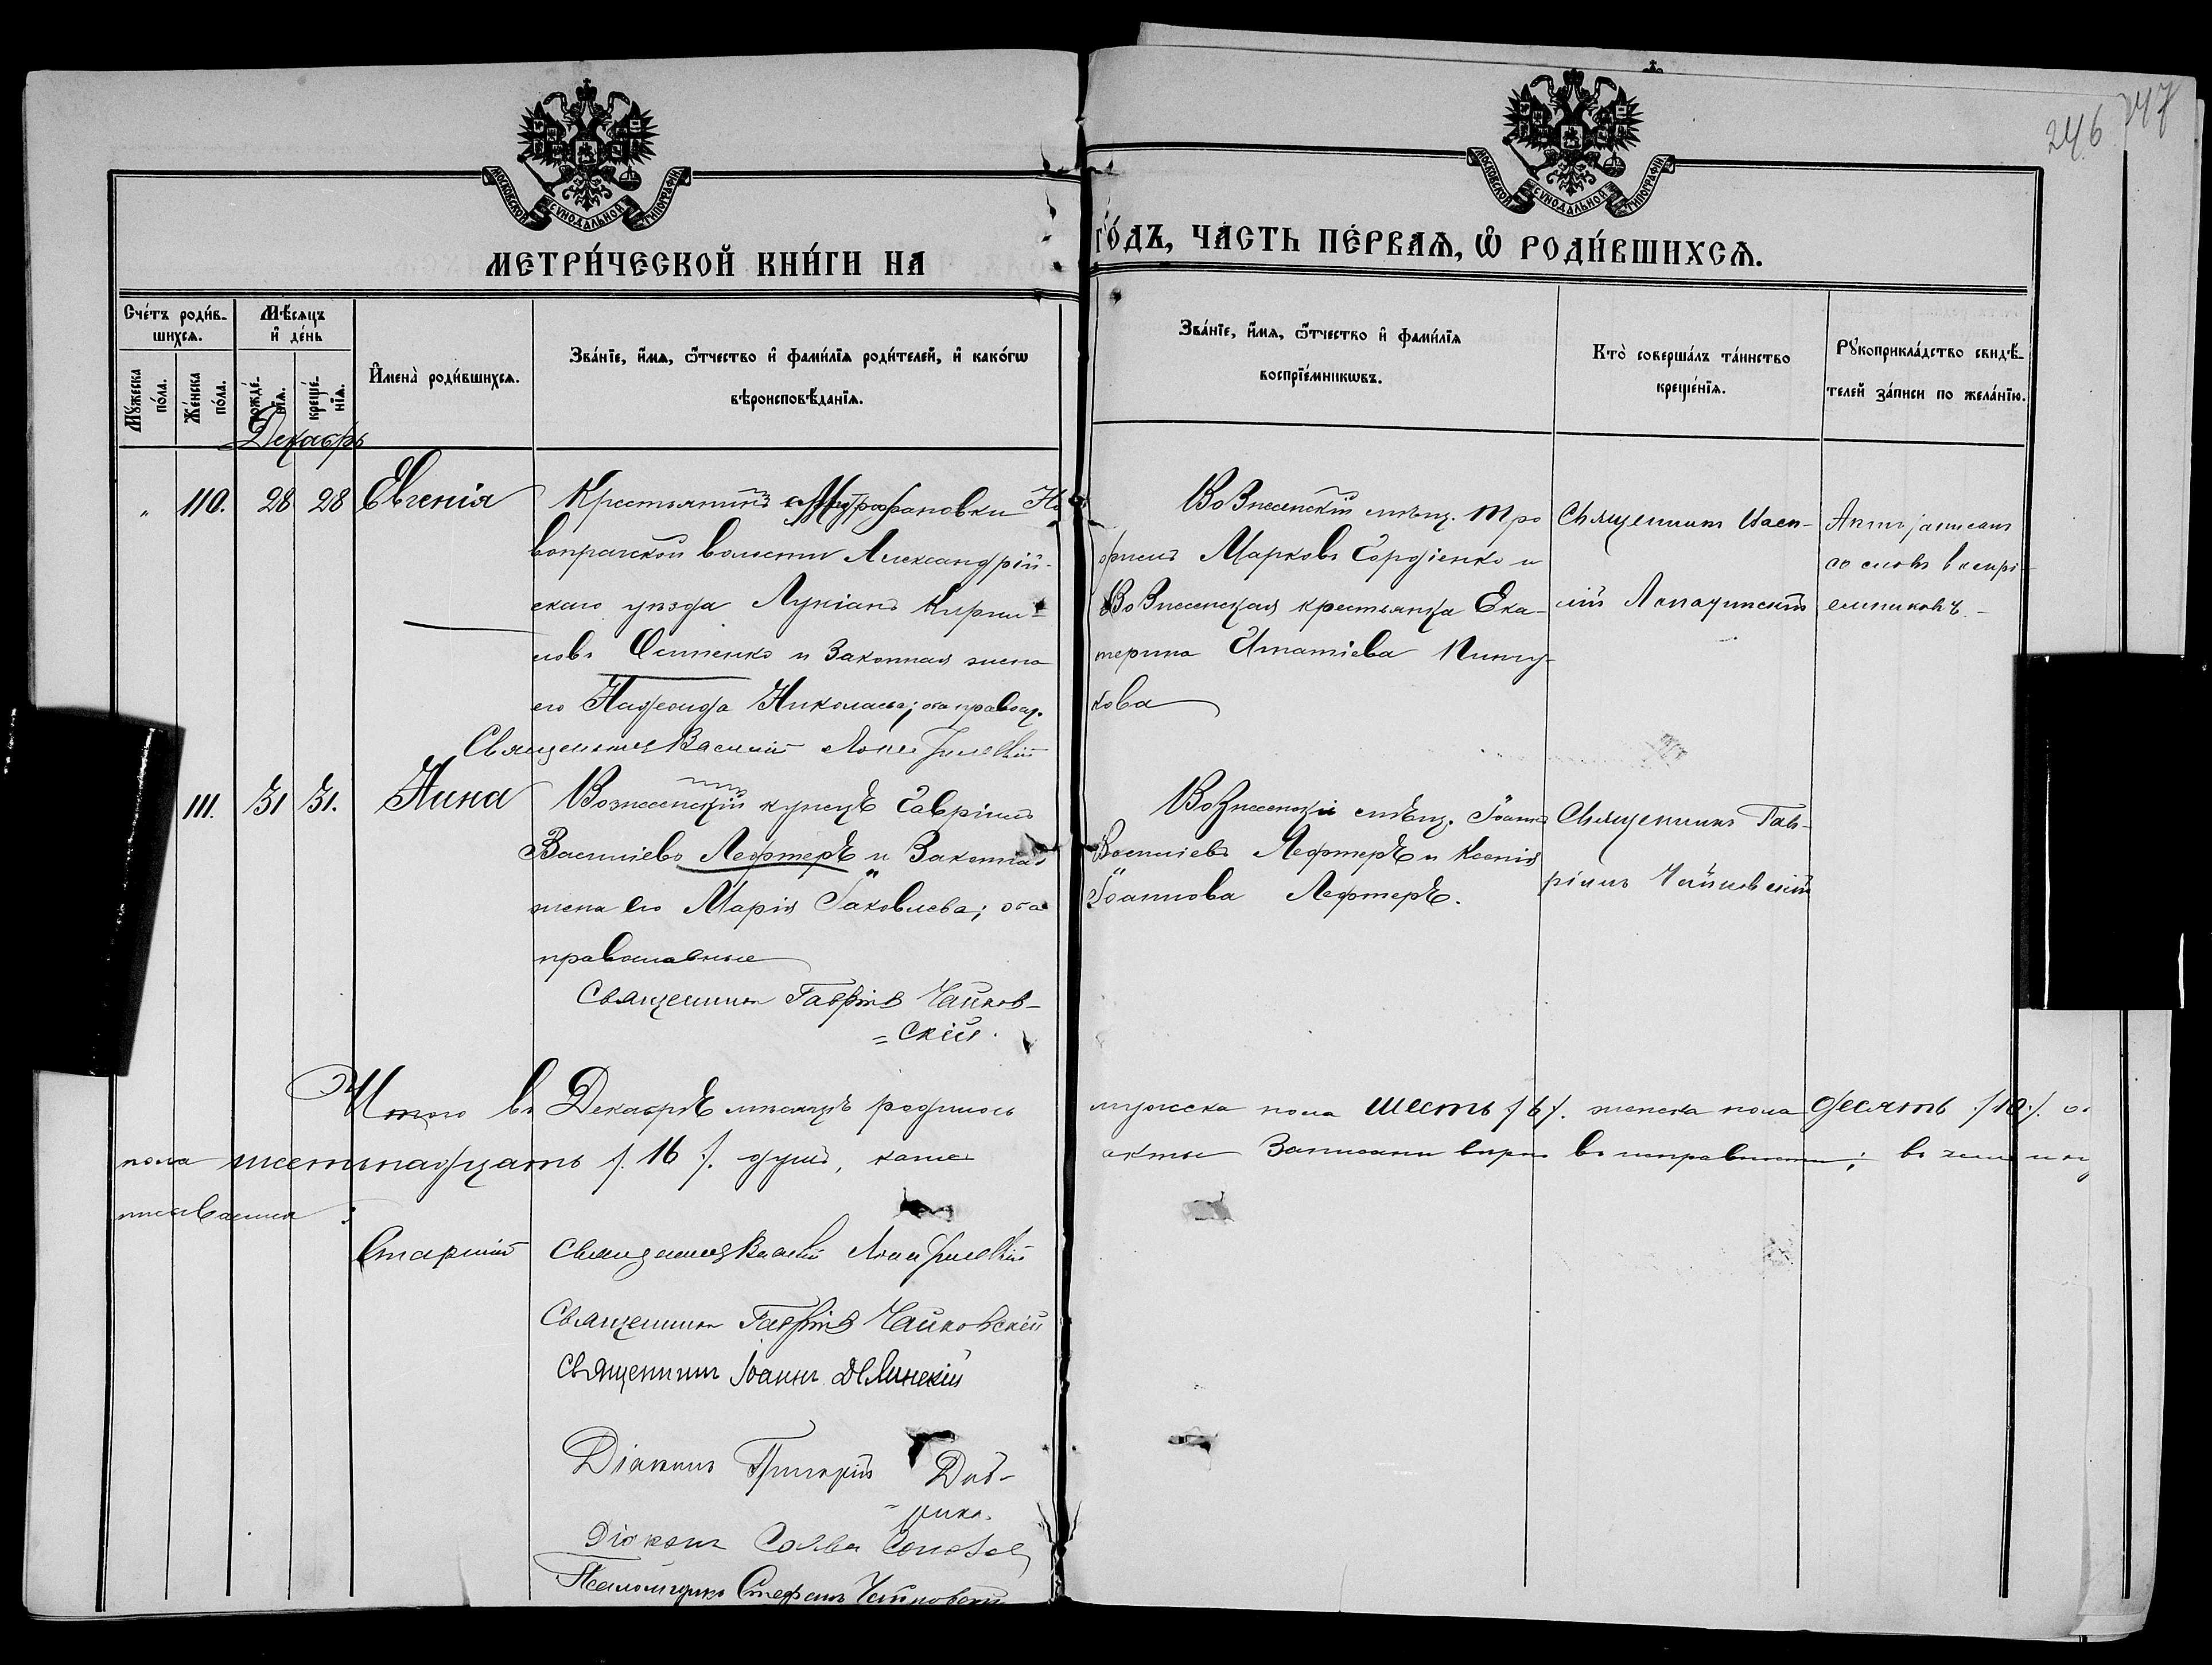 246 247
МОСКОВСКОЙ СѴНОДАЛЬНОЙ ТИПОГРАФІИ
МОСКОВСКОЙ СѴНОДАЛЬНОЙ ТИПОГРАФІИ
МЕТРИ́ЧЕСКОЙ КНИ́ГИ НА
ГО́ДЪ, ЧА́СТЬ ПЕ́РВАѦ, Ѡ҆ РОДИ́ВШИХСѦ.
Сче́тъ роди́в-
шихсѧ.
Мꙋ́жеска по́ла.
Же́нска по́ла.
Мѣ́сѧцъ
и҆ де́нь
рожде́-
нїѧ.
креще́-
нїѧ.
Декабрь
И҆мена̀ роди́вшихсѧ.
Зва́нїе, и҆́мѧ, ѻ҆́тчество и҆ фами́лїѧ роди́телей, и҆ како́гѡ
вѣроисповѣ́данїѧ.
Зва́нїе, и҆́мѧ, ѻ҆́тчество и҆ фами́лїѧ
воспрїе́мникѡвъ.
Кто̀ соверша́лъ та́инство
креще́нїѧ.
Рꙋкоприкла́дство свидѣ́-
телей за́писи по жела́нїю.
" 110. 28 28 Евгенія
Крестьянинъ с. Митрофановки Но
вопражской волости Александрій-
скаго уѣзда Лукіанъ Кирил-
ловъ Осипенко и законная жена
его Надежда Николаева; оба правосл.
Священникъ Василій
Вознесенскій мѣщ. Тро
фимъ Марковъ Гордіенко и
Вознесенская крестьянка Ека-
терина Игнатіева Пинчу-
кова
Священникъ Васи-
лій
Актъ записанъ
со словъ воспрі-
емниковъ
111. 31 31. Нина
Вознесенскій купецъ Гавріилъ
Василіевъ Лефтеръ и законная
жена его Марія Іаковлева; оба
православные
Священникъ Гавріилъ Чайков-
=скій.
Вознесенскій мѣщ. Іоаннъ
Василіевъ Лефтеръ и Ксенія
Іоаннова Лефтеръ.
Священникъ Гав-
ріилъ Чайковскій
Итого въ Декабрѣ мѣсяцѣ родилось
мужеска пола шесть /.6/. женска пола десять /.10./. о.
пола шестнадцать /.16./. душъ,
акты записаны вѣрно въ исправности; въ чемъ и под
писываемся:
Старшій Священникъ Василій
Священникъ Гавріилъ Чайковскій
Священникъ Іоаннъ
Діаконъ Григорій
Діаконъ Савва
Псаломщикъ Стефанъ Чайковскій